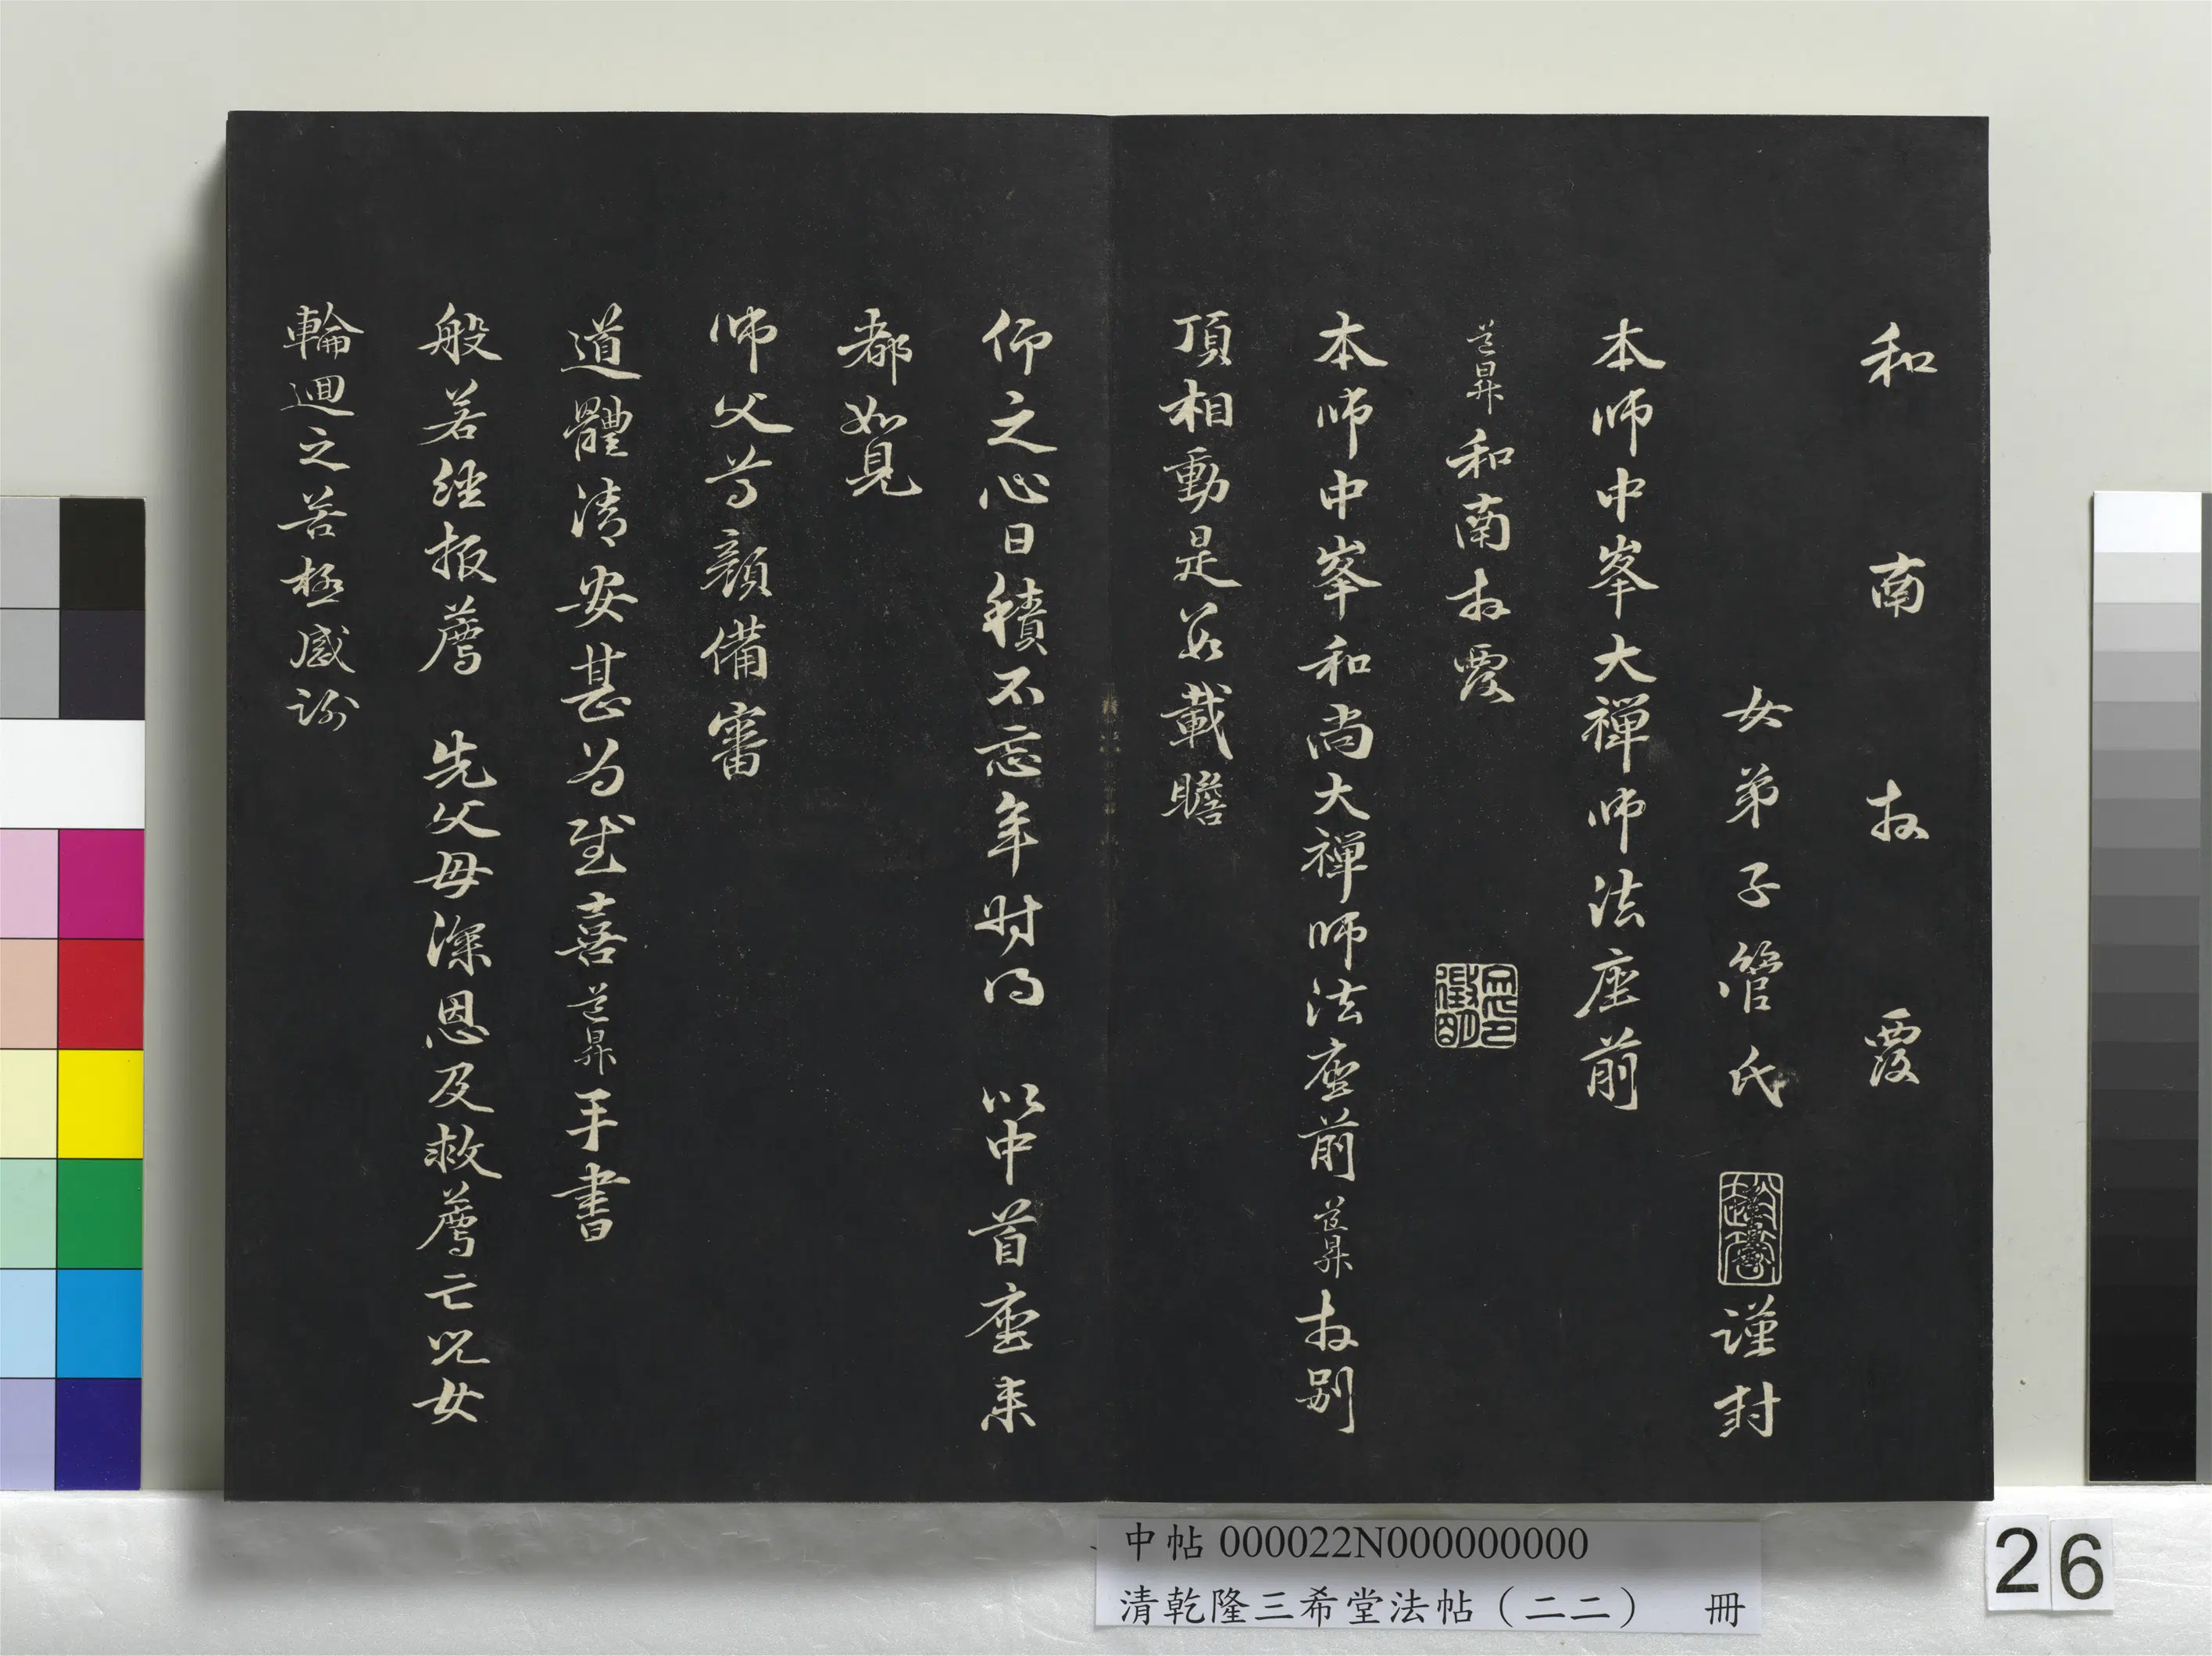 和南拜覆
女弟子管氏謹封
本師中峯大禪師法座前
道昇和南拜覆
本師中峯和尚大禪師法座前道昇拜別
頂相動是數載瞻
仰之心日積不忘年時得以中首座来
都如見
師父尊顏備審
道體清安甚為感喜道昇手書
般若经报薦先父母深恩及救薦亡兒女
輪迴之苦極感謝
中帖000022N000000000
清乾隆三希堂法帖（二二） 冊
26